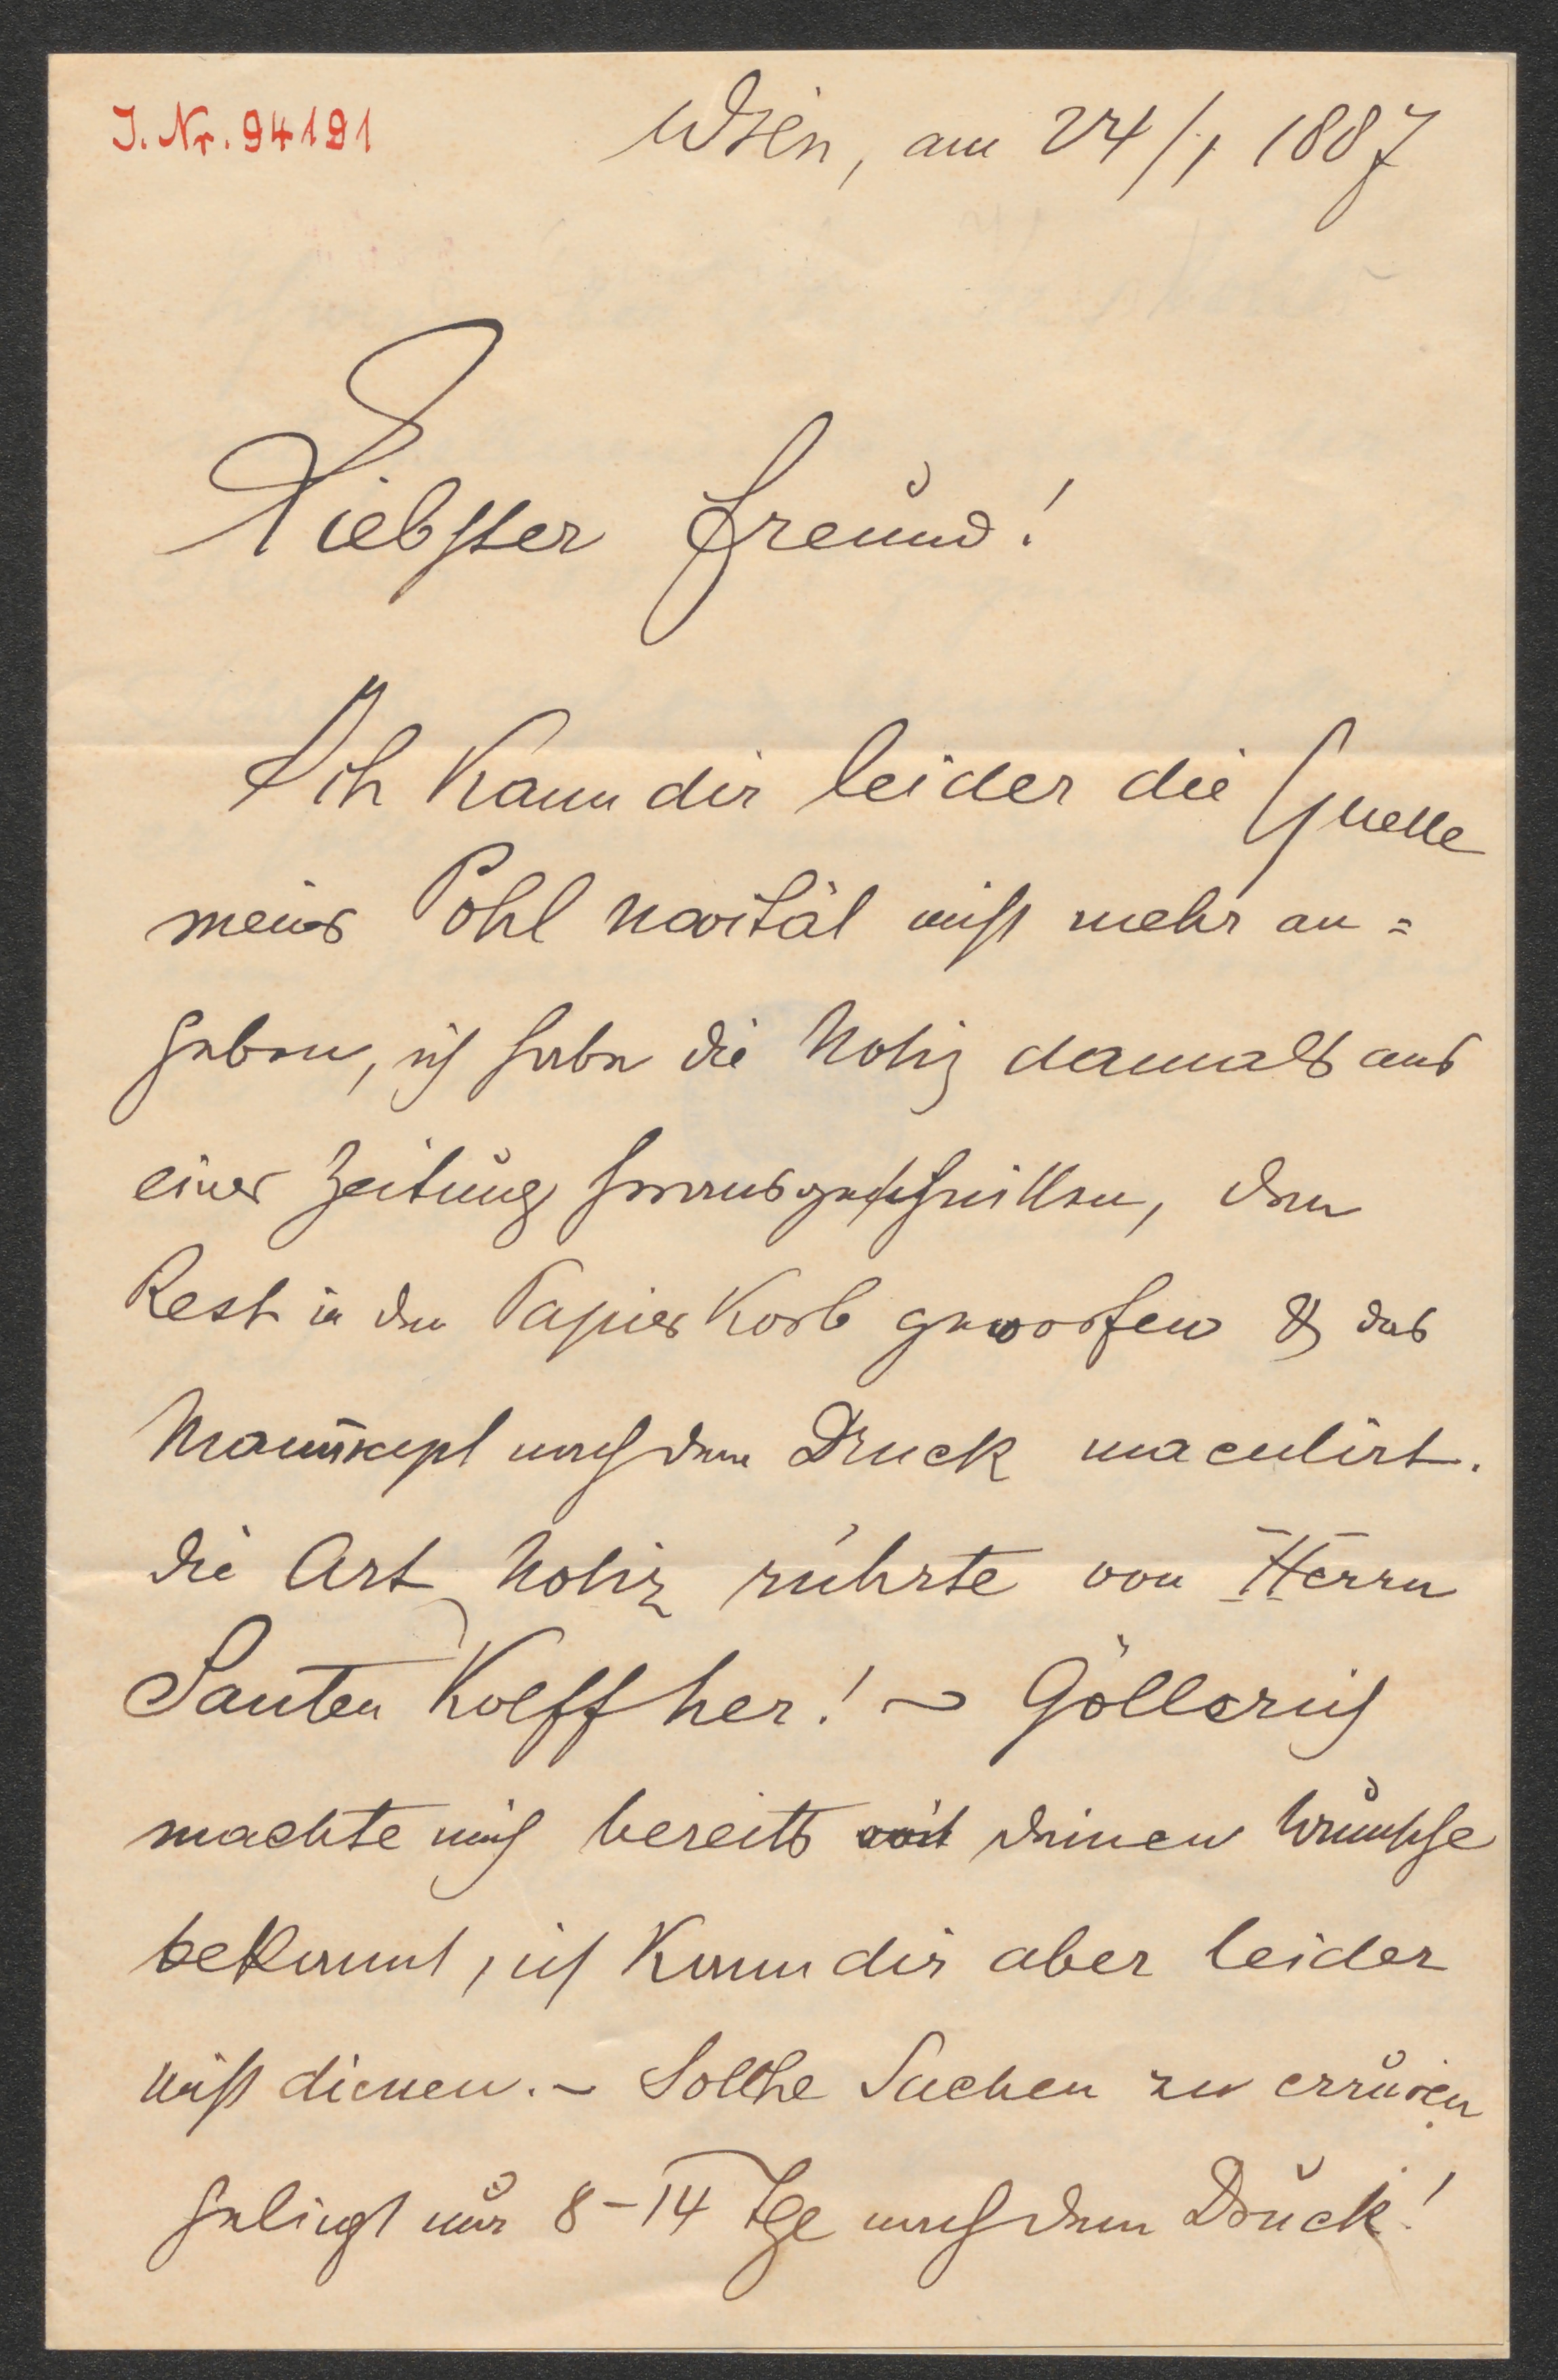 J. Nr. 94191
Wien, am 24/1 1887
Liebster Freund!
Ich kann dir leider die Quelle
meiner Pohl novität nicht mehr an=
geben, ich habe die Notiz damals aus
einer Zeitung herausgeschnitten, den
Rest in den Papierkorb geworfen & das
Manuskript nach dem Druck maculirt.
die Art Notiz rührte von Herrn
Santen Kolff her! – Göllerich
machte mich bereits mit deinen Wunsche
bekannt, ich kann dir aber leider
nicht dienen. – Solche Sachen zu erruiren
gelingt nur 8–14 Tge nach dem Druck!